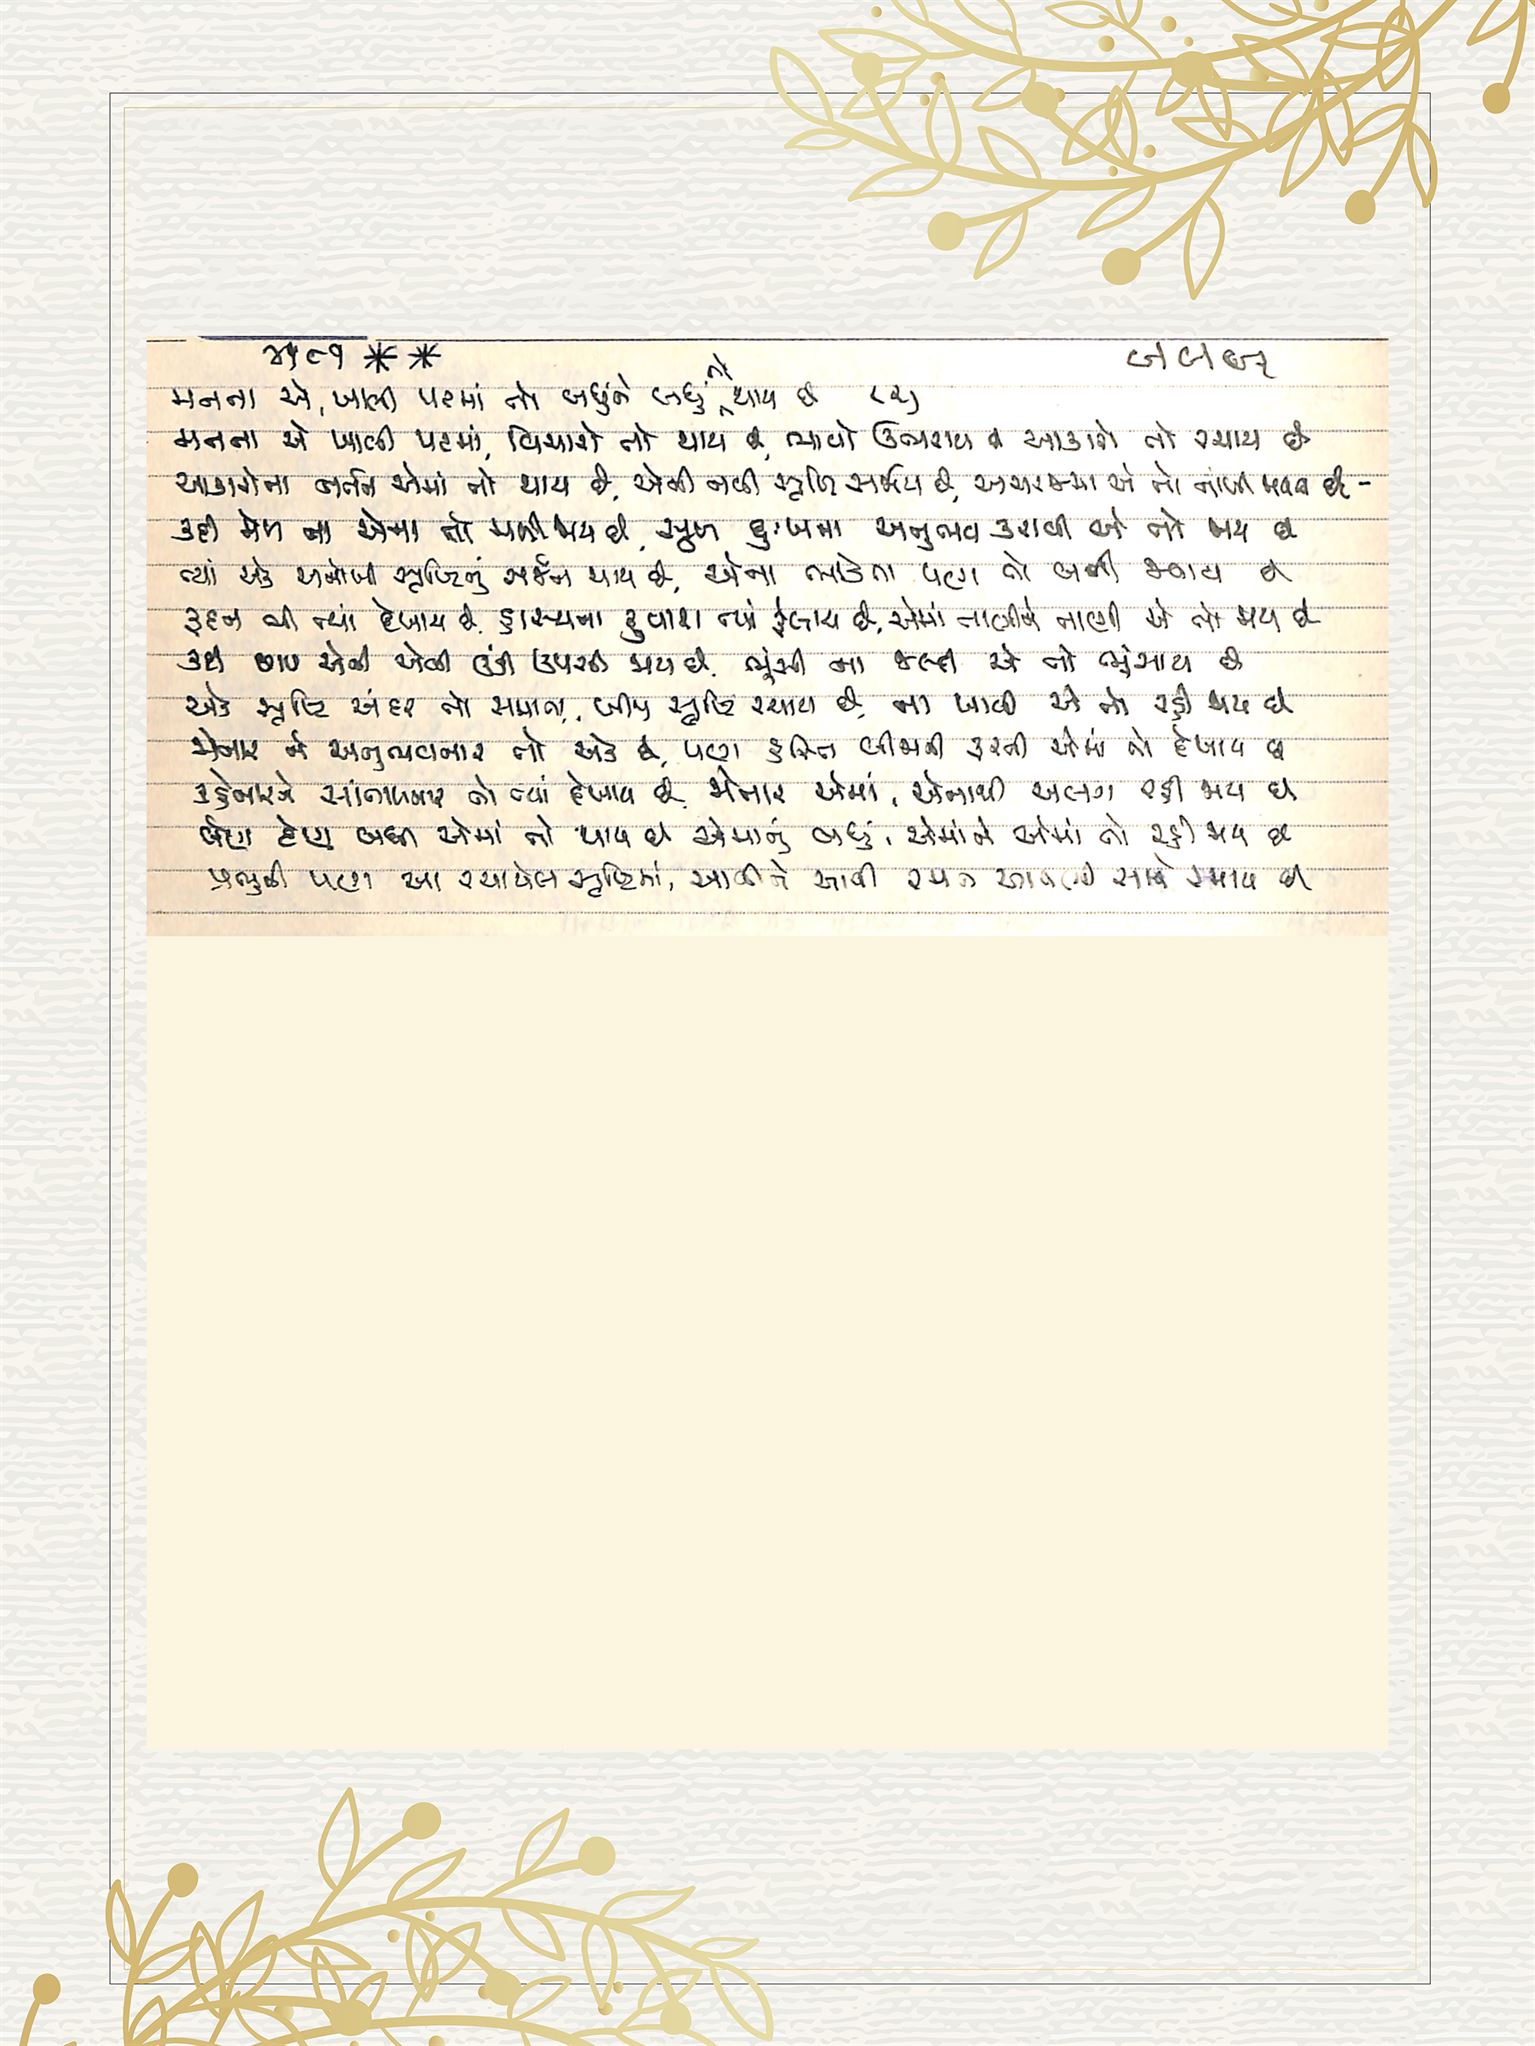 ૪૫૯૧ ** 
મનના એ, ખાલી પટમાં તો બધુંને બધું તો થાય છે (૨)
મનના એ ખાલી પટમાં, વિચારો તો થાય છે, ભાવો ઉભરાય છે આકારો તો રચાય છે
આકારોના નર્તન એમાં તો થાય છે, એની નવી સૃષ્ટિ સર્જાય છે, અચરજમાં એ તો નાંખી જાય છે -
કદી મેળ ના એના તો મળી જાય છે, સુખ દુઃખના અનુભવ કરાવી એ તો જાય છે
ત્યાં એક અનોખી સૃષ્ટિનું સર્જન થાય છે, એના ભોક્તા પણ તો બની જવાય છે
રૂદન ભી ત્યાં દેખાય છે, હાસ્યના ફુવારા ત્યાં ફેલાય છે, એમાં તાણીને તાણી એ તો જાય છે
કદી છાપ એની એવી ઊંડી ઉપસી જાય છે, ભૂંસી ના જલ્દી એ તો ભુંસાય છે
એક સૃષ્ટિ અંદર તો સમાય, બીજી સૃષ્ટિ રચાય છે, ના ખાલી એ તો રહી જાય છે
જોનાર ને અનુભવનાર તો એક છે, પણ હસ્તિ બીજાની કરની એમાં તો દેખાય છે
કહેનારને સાંભળનાર તો ત્યાં દેખાય છે, જોનાર એમાં, એનાથી અલગ રહી જાય છે
લેણ દેણ બધી એમાં તો થાય છે એમાનું બધું, એમાંને એમાં તો રહી જાય છે
પ્રભુની પણ આ રચાયેલ સૃષ્ટિમાં, આવીને આવી રમત આપણી સાથે રમાય છે